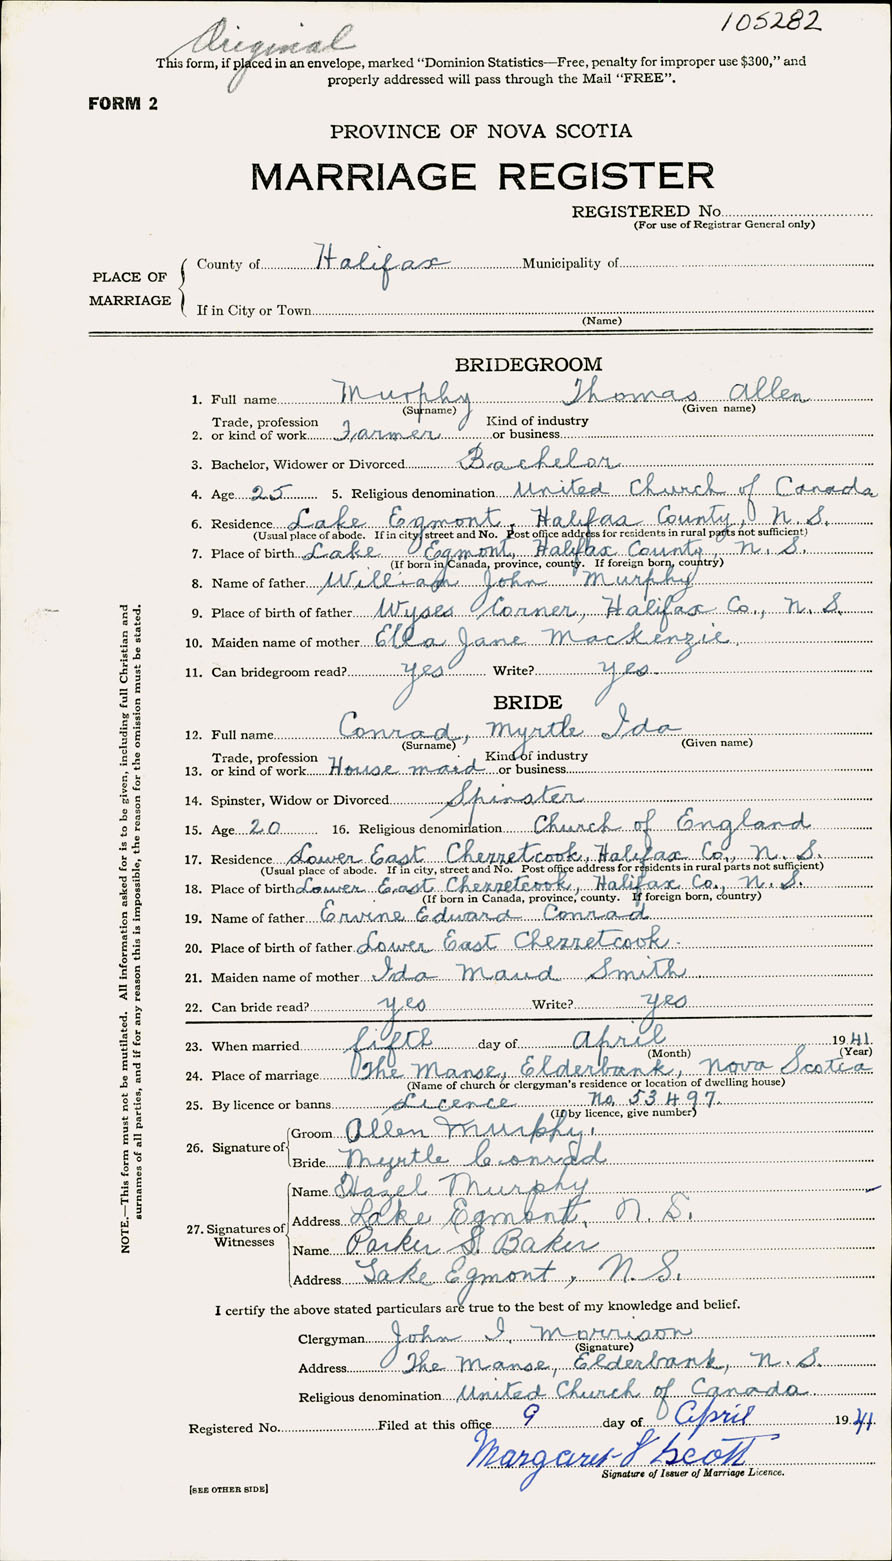 105282
Original
This form, if placed in an envelope, marked “Dominion Statistics—Free, penalty for improper use $300,” and
properly addressed will pass through the Mail “FREE”.
FORM 2
PROVINCE OF NOVA SCOTIA
MARRIAGE REGISTER
REGISTERED No.
(For use of Registrar General only)
PLACE OF MARRIAGE
County of Halifax Municipality of
If in City or Town
(Name)
BRIDEGROOM
1. Full name Murphy Thomas Allen
(Surname) (Given name)
Trade, profession Kind of industry
2. or kind of work Farmer or business
3. Bachelor, Widower or Divorced Bachelor
4. Age 25 5. Religious denomination United Church of Canada
6. Residence Lake Egmont, Halifax County, N.S.
(Usual place of abode. If in city, street and No. Post office address for residents in rural parts not sufficient)
7. Place of birth Lake Egmont, Halifax County, N.S.
(If born in Canada, province, county. If foreign born, country)
8. Name of father William John Murphy
9. Place of birth of father Wyses Corner, Halifax Co., N.S.
10. Maiden name of mother Ella Jane Mackenzie.
11. Can bridegroom read? yes Write? yes.
BRIDE
12. Full name Conrad, Myrtle Ida
(Surname) (Given name)
Trade, profession Kind of industry
13. or kind of work House maid or business
14. Spinster, Widow or Divorced Spinster
15. Age 20 16. Religious denomination Church of England
17. Residence Lower East Chezzetcook, Halifax Co., N.S.
(Usual place of abode. If in city, street and No. Post office address for residents in rural parts not sufficient)
18. Place of birth Lower East Chezzetcook, Halifax Co., N.S.
(If born in Canada, province, county. If foreign born, country)
19. Name of father Ervine Edward Conrad
20. Place of birth of father Lower East Chezzetcook.
21. Maiden name of mother Ida Maud Smith
22. Can bride read? yes Write? yes
23. When married fifth day of April 1941
(Month) (Year)
24. Place of marriage The Manse, Elderbank, Nova Scotia
(Name of church or clergyman's residence or location of dwelling house)
25. By licence or banns Licence No. 53497.
(If by licence, give number)
26. Signature of
Groom Allen Murphy.
Bride Myrtle Conrad
27. Signatures of Witnesses
Name Hazel Murphy
Address Lake Egmont, N.S.
Name Parker S. Baker
Address Lake Egmont, N.S.
I certify the above stated particulars are true to the best of my knowledge and belief.
Clergyman John I. Morrison
(Signature)
Address The Manse, Elderbank, N.S.
Religious denomination United Church of Canada
Registered No. Filed at this office 9 day of April 1941.
Margaret S Scott
Signature of Issuer of Marriage Licence.
[SEE OTHER SIDE]
NOTE.—This form must not be mutilated. All information asked for is to be given, including full Christian and
surnames of all parties, and if for any reason this is impossible, the reason for the omission must be stated.